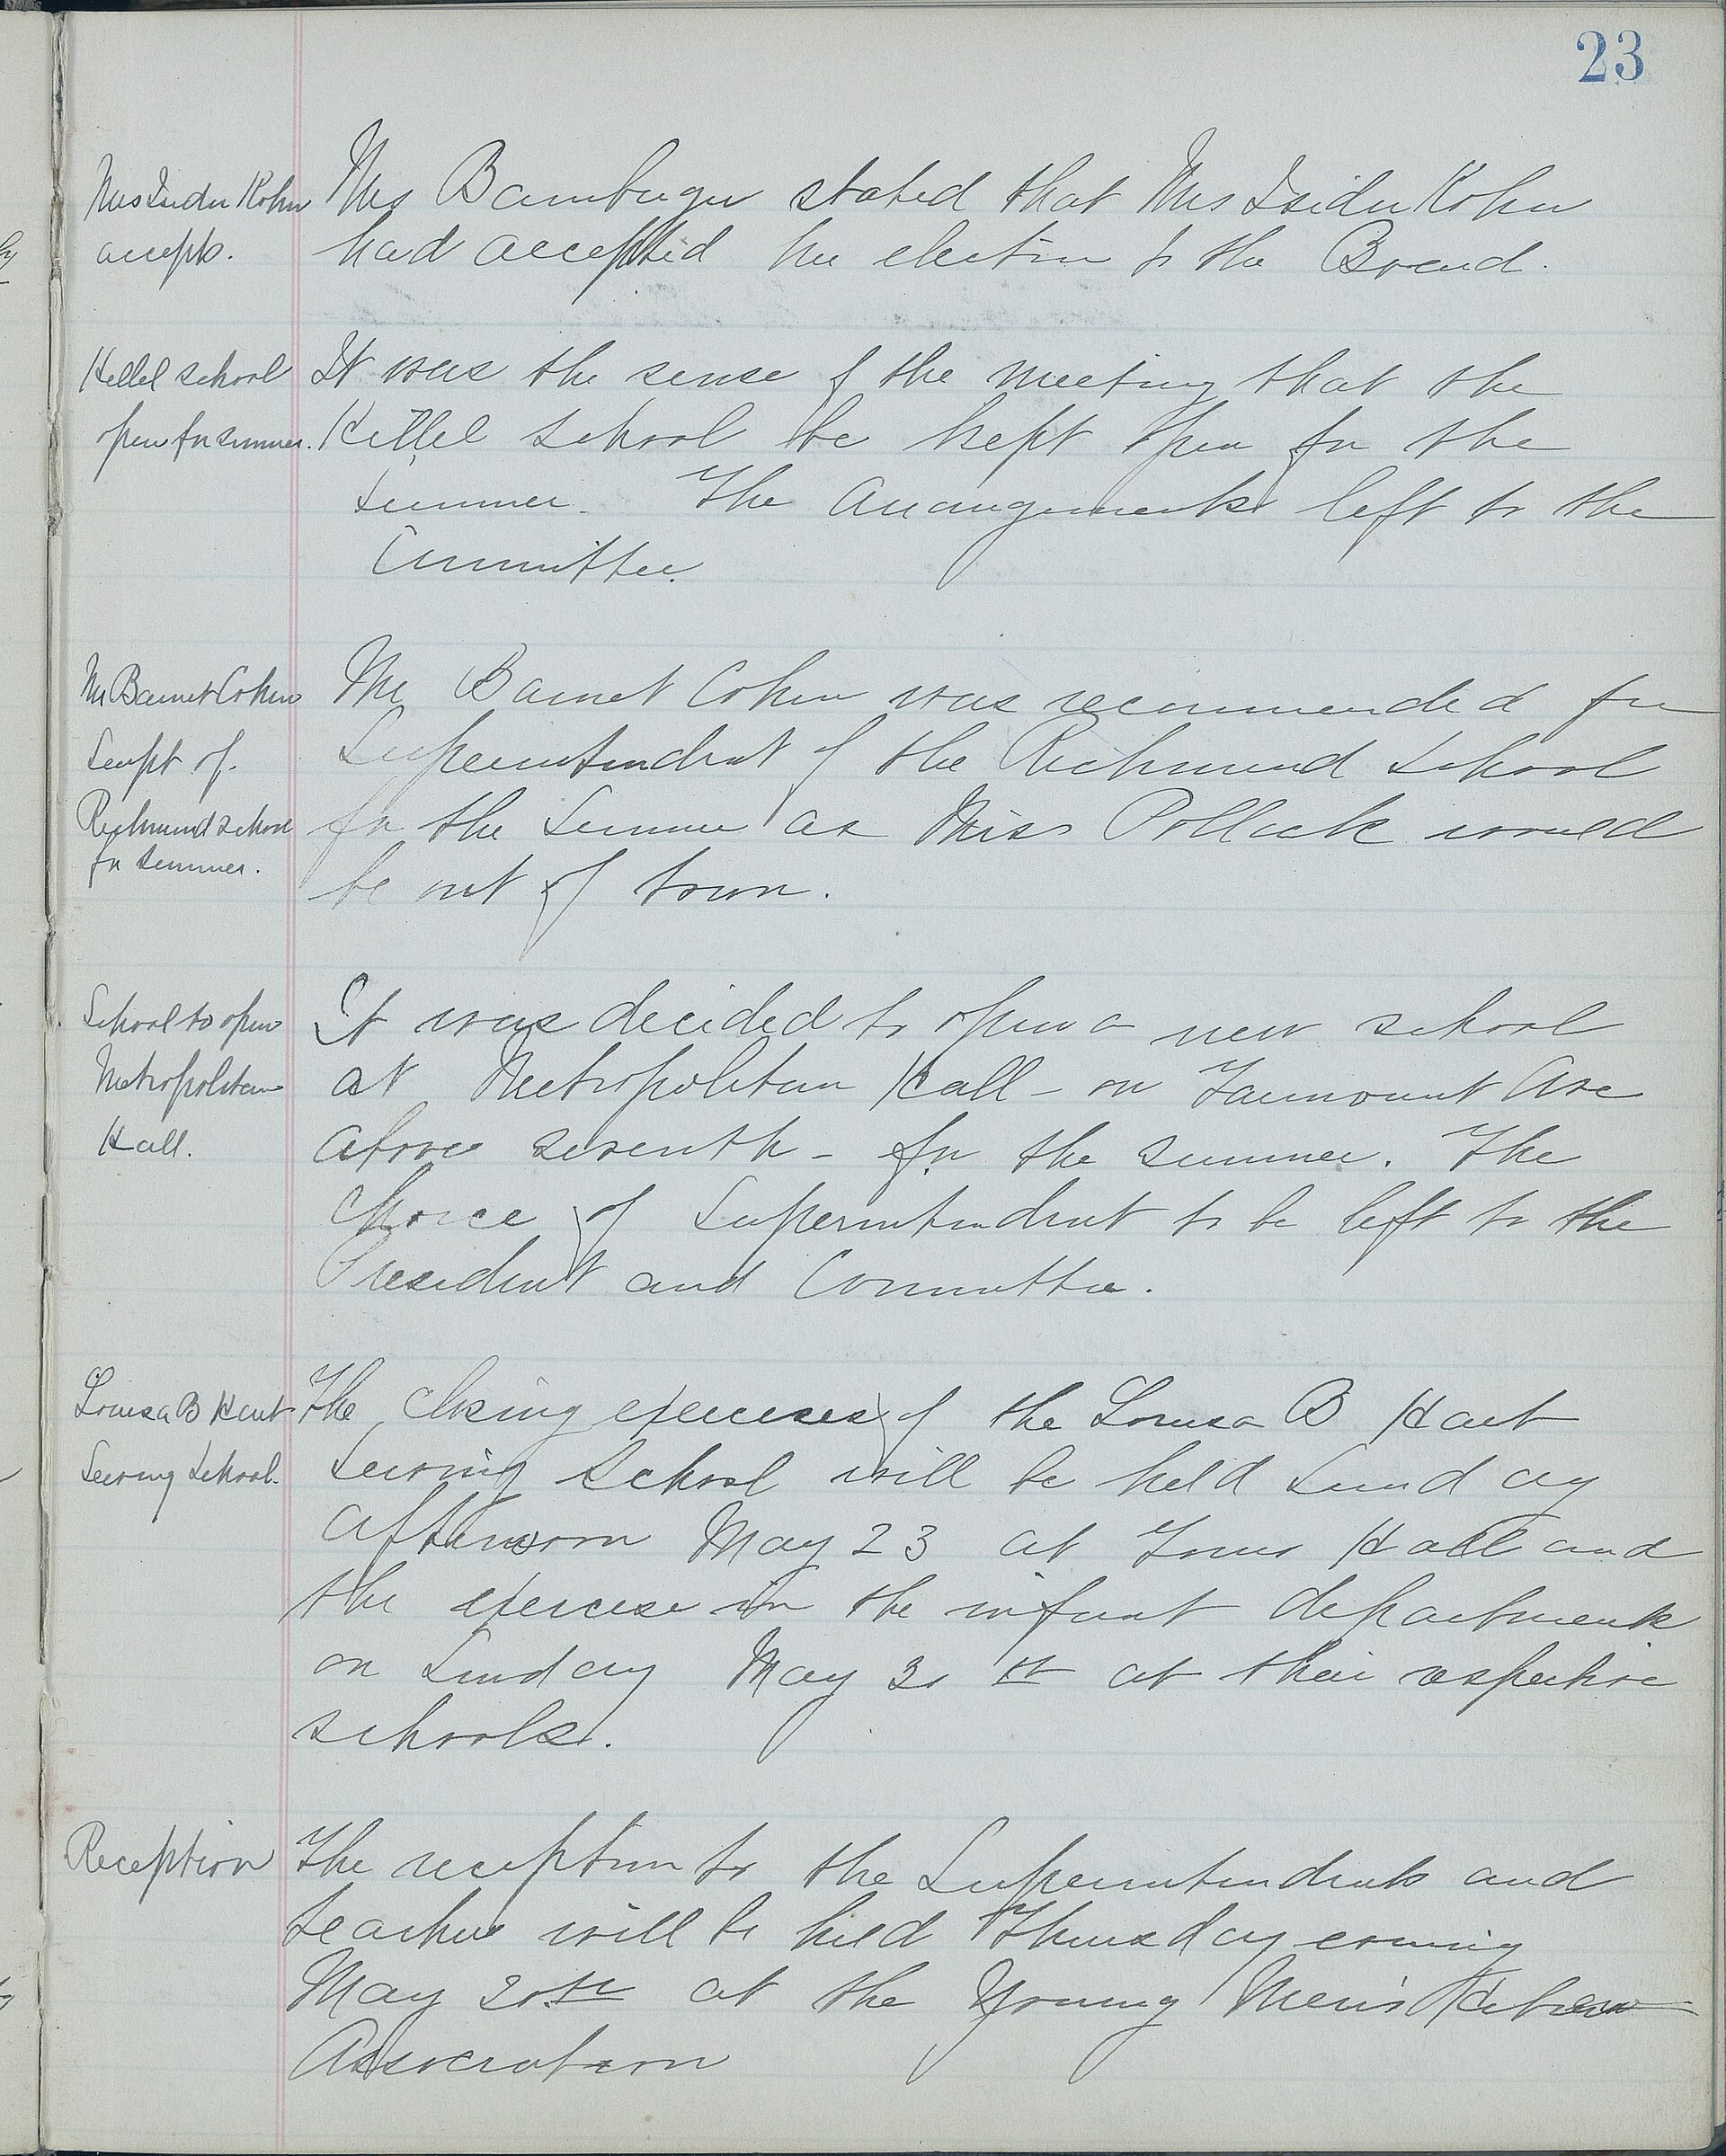 23
Mrs Isidor Kohn
accepts.
Mrs Bamberger stated that Mrs Isidor Kohn
had accepted her election to the Board.
Hillel school
open for summer.
It was the sense of the meeting that the
Hillel School be kept open for the
summer. The arrangements left to the
Committee.
Mr Barnet Cohen
Supt of
Richmond School
for summer.
Mr Barnet Cohen was recommended for
Superintendent of the Richmond School
for the Summer as Miss Pollack would
be out of town.
School to open
Metropolitan
Hall.
It was decided to open a new school
at Metropolitan Hall - on Fairmount Ave
above seventh - for the summer. The
choice of Superintendent to be left to the
President and Committee.
Louisa B Hart
Sewing School.
The closing exercises of the Louisa B Hart
Sewing School will be held Sunday
afternoon May 23 at Touro Hall and
the exercise in the infant departments
on Sunday May 30th at their respective
schools.
Reception
The reception to the Superintendents and
teachers will be held Thursday evening
May 20th at the Young Men's Hebrew
Association